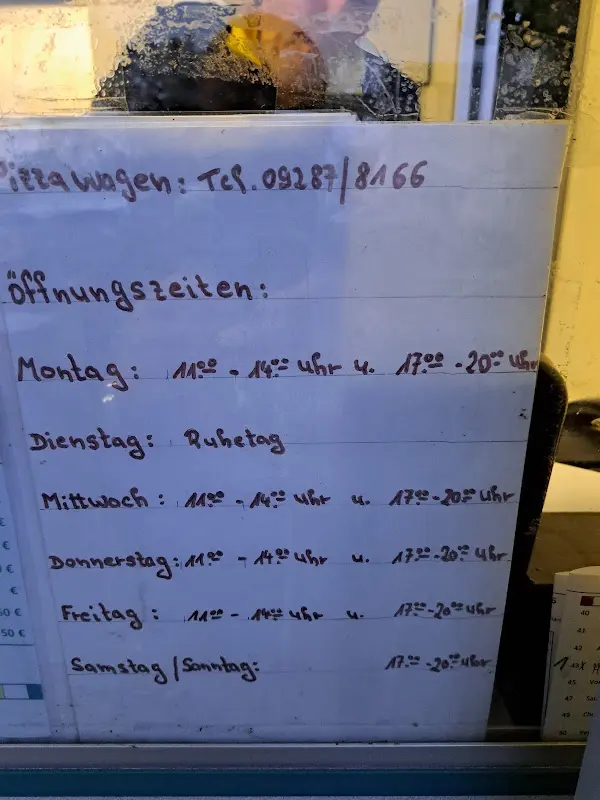 Pizzawagen: Tel. 09287/8166
Öffnungszeiten:
Montag: 11.00 - 14.00 Uhr u. 17.00 - 20.00 Uhr
Dienstag: Ruhetag
Mittwoch: 11.00 - 14.00 Uhr u. 17.00 - 20.00 Uhr
Donnerstag: 11.00 - 14.00 Uhr u. 17.00 - 20.00 Uhr
Freitag: 11.00 - 14.00 Uhr u. 17.00 - 20.00 Uhr
Samstag/Sonntag: 17.00 - 20.00 Uhr
€
€
€
€
50 €
50 €
40
41
42
45
47
49
50